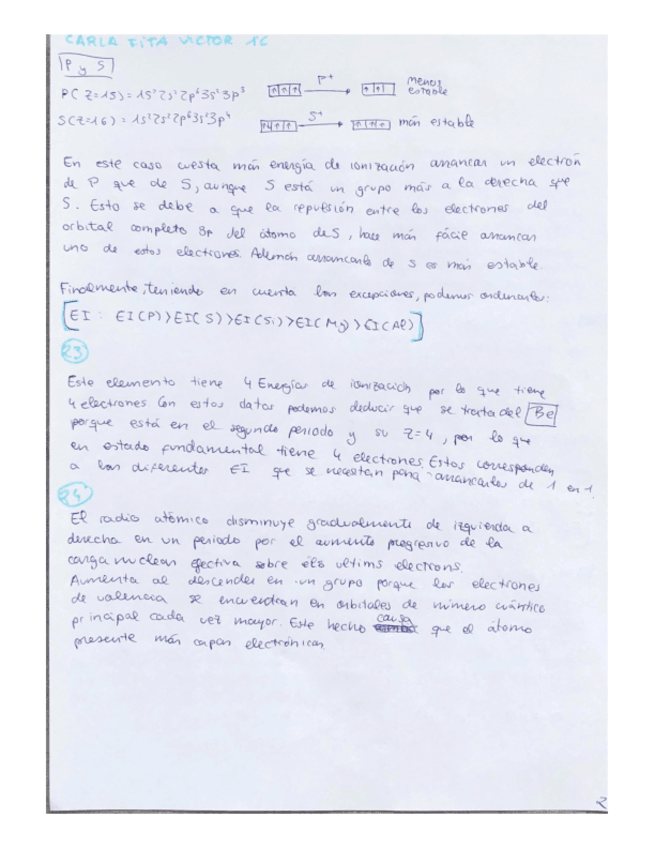 CARLA TITA VICTOR 1C
P y S
P(Z=15)=1s²2s²2p⁶3s²3p³ P⁺ menos estable
S(Z=16)=1s²2s²2p⁶3s²3p⁴ S⁺ más estable
En este caso cuesta más energía de ionización arrancar un electrón
de P que de S, aunque S está un grupo más a la derecha que
S. Esto se debe a que la repulsión entre los electrones del
orbital completo 3p del átomo de S, hace más fácil arrancar
uno de estos electrones. Además arrancarlo de S es más estable.
Finalmente, teniendo en cuenta las excepciones, podemos ordenarlos:
[EI: EI(P)>EI(S)>EI(Si)>EI(Mg)>EI(Al)]
23
Este elemento tiene 4 Energías de ionización por lo que tiene
4 electrones Con estos datos podemos deducir que se trata del Be
porque está en el segundo periodo y su Z=4, por lo que
en estado fundamental tiene 4 electrones. Estos corresponden
a las diferentes EI que se necesitan para arrancarlos de 1 en 1.
24
El radio atómico disminuye gradualmente de izquierda a
derecha en un periodo por el aumento progresivo de la
carga nuclear efectiva sobre els ultims electrons.
Aumenta al descender en un grupo porque los electrones
de valencia se encuentran en orbitales de número cuántico
principal cada vez mayor. Este hecho causa que el átomo
presente más capas electrónicas.
2